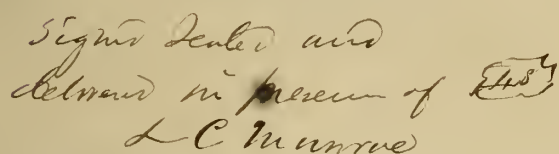 Signed Sealed and
delivered in presence of {LS}
L C Munroe